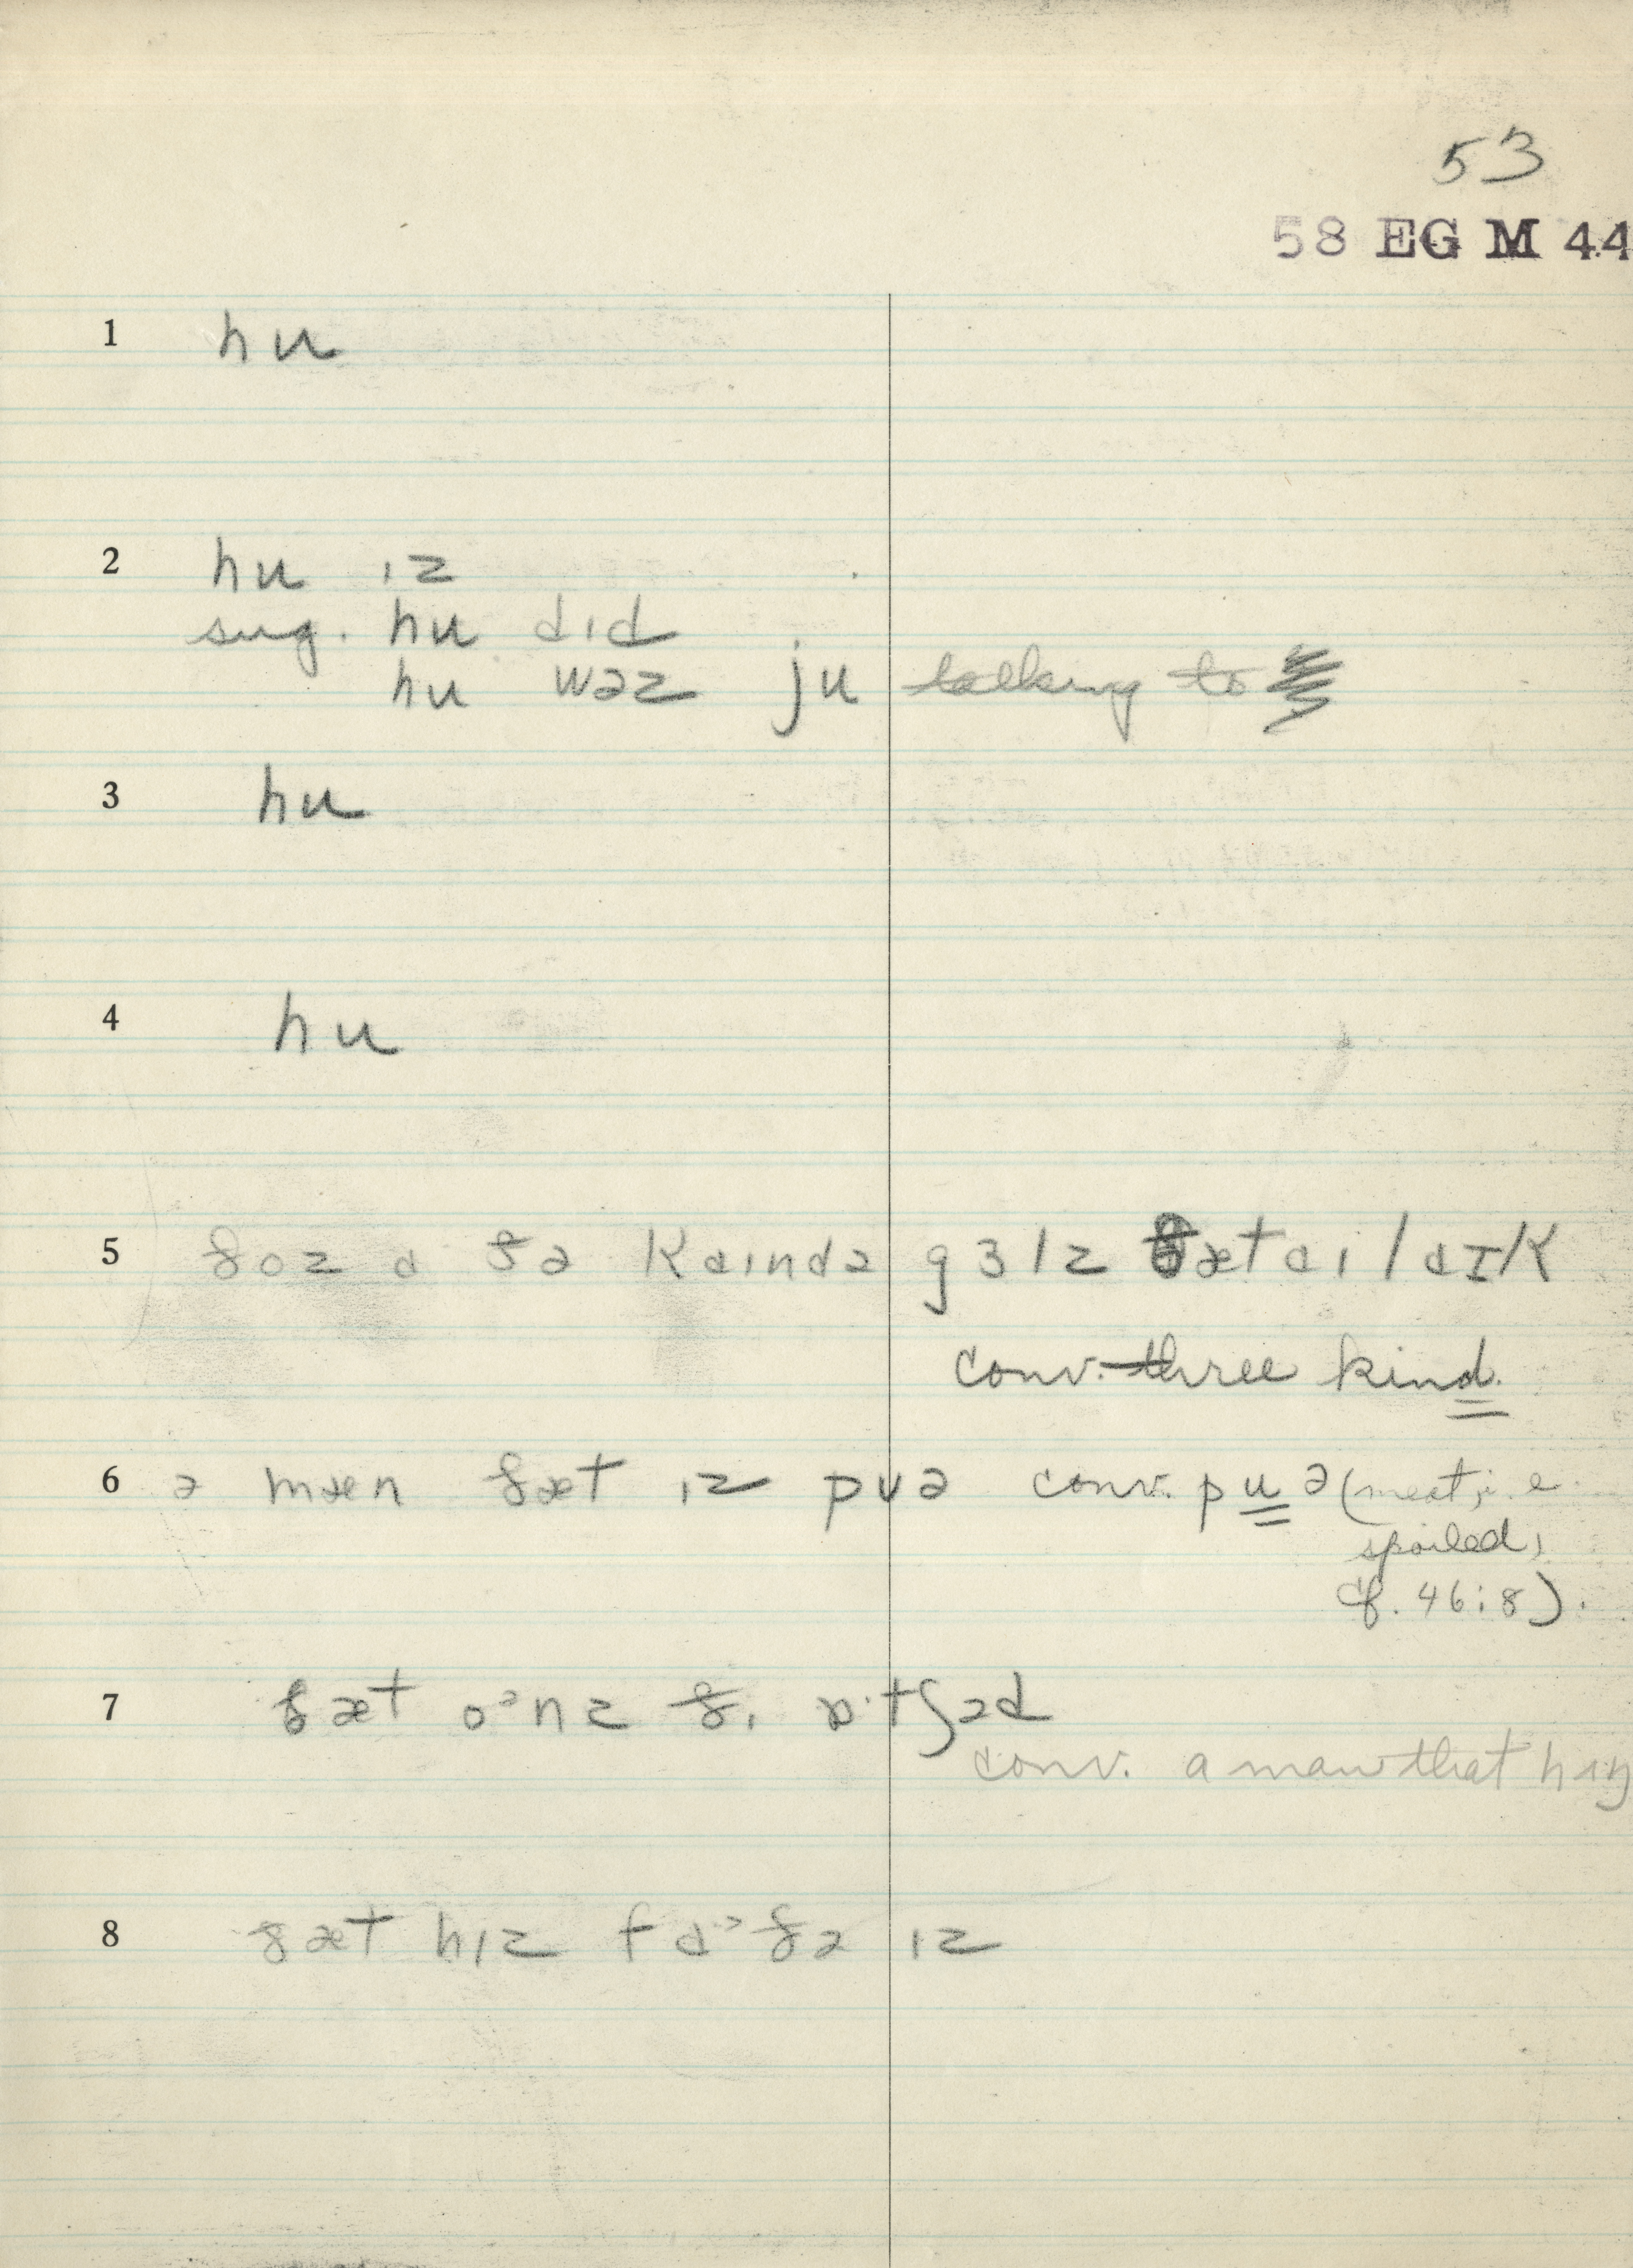 53
58 EG M 44
1 hu
2 hu ɪz
sug. hu dɪd
hu wəz ju talking to
3 hu
4 hu
5 ðoz ɑ ðə kaɪndə gɜlz ðæt aɪ laɪk
conv. three kind.
6 ə mæn ðæt ɪz pʊə conv. puə (meat, i.e.
spoiled,
cf. 46:8).
7 ðæt oᵊnz ðɪ ɒ·tʃəd
conv. a man that hɪŋ
8 ðæt hɪz fɑᵊðə ɪz